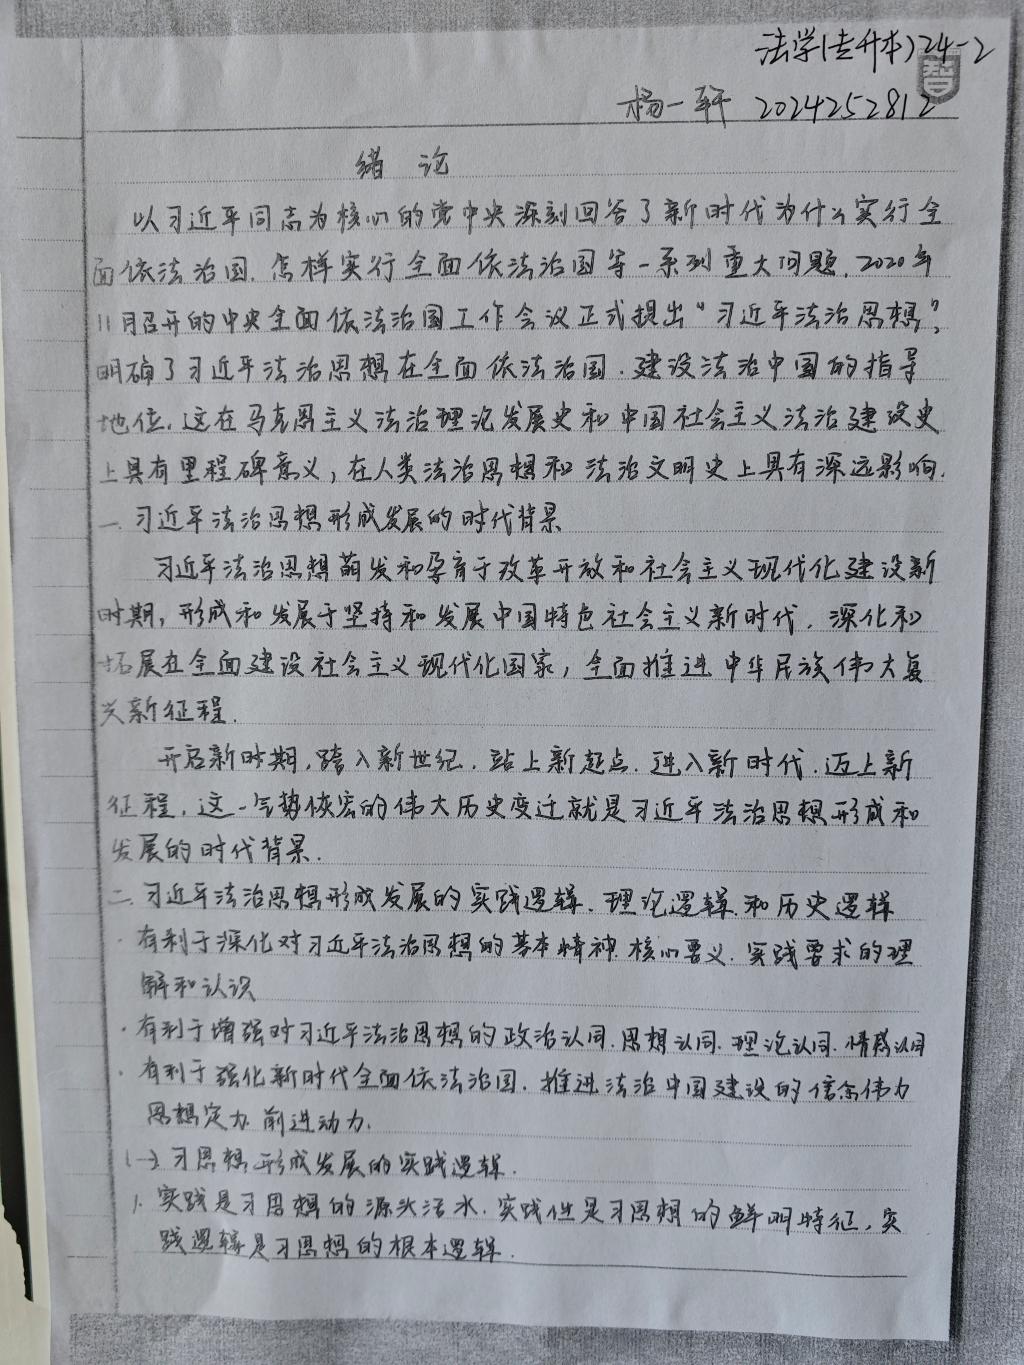 法学(专升本)24-2
杨一轩 2024252812
绪 论
以习近平同志为核心的党中央深刻回答了新时代为什么实行全
面依法治国、怎样实行全面依法治国等一系列重大问题，2020年
11月召开的中央全面依法治国工作会议正式提出“习近平法治思想”，
明确了习近平法治思想在全面依法治国、建设法治中国的指导
地位，这在马克思主义法治理论发展史和中国社会主义法治建设史
上具有里程碑意义，在人类法治思想和法治文明史上具有深远影响.
一.习近平法治思想形成发展的时代背景
习近平法治思想萌发和孕育于改革开放和社会主义现代化建设新
时期，形成和发展于坚持和发展中国特色社会主义新时代，深化和
拓展在全面建设社会主义现代化国家，全面推进中华民族伟大复
兴新征程.
开启新时期，跨入新世纪，站上新起点，进入新时代，迈上新
征程，这一气势恢宏的伟大历史变迁就是习近平法治思想形成和
发展的时代背景.
二.习近平法治思想形成发展的实践逻辑、理论逻辑、和历史逻辑
·有利于深化对习近平法治思想的基本精神、核心要义、实践要求的理
解和认识
·有利于增强对习近平法治思想的政治认同、思想认同、理论认同、情感认同
·有利于强化新时代全面依法治国、推进法治中国建设的信念伟力
思想定力、前进动力.
(一)习思想形成发展的实践逻辑.
1.实践是习思想的源头活水，实践性是习思想的鲜明特征，实
践逻辑是习思想的根本逻辑.